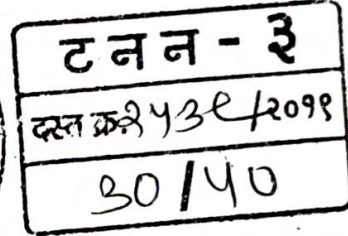 ट न न - ३
दस्त क्र.२५३९/२०१९
३०/५०